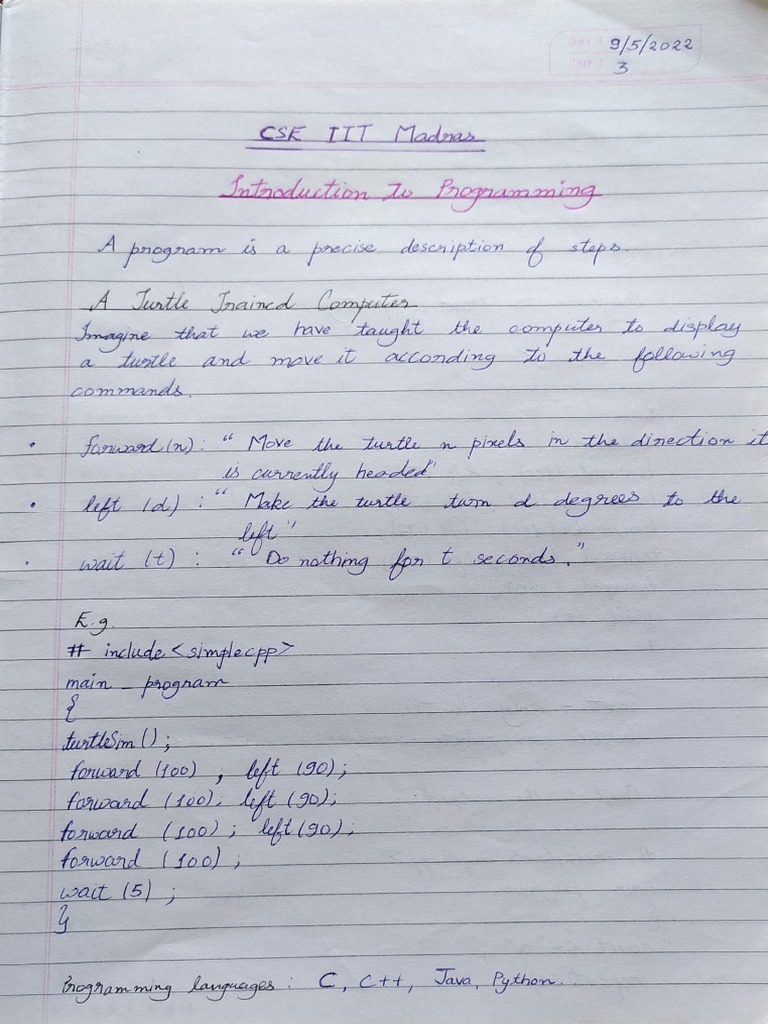 9/5/2022
3
CSE IIT Madras
Introduction to Programming
A program is a precise description of steps.
A Turtle Trained Computer
Imagine that we have taught the computer to display
a turtle and move it according to the following
commands.
• forward (n) : “ Move the turtle n pixels in the direction it
is currently headed”
• left (d) : “ Make the turtle turn d degrees to the
left”
• wait (t) : “ Do nothing for t seconds.”
E.g.
# include <simplecpp>
main _ program
{
turtleSim () ;
forward (100) , left (90);
forward (100); left (90);
forward (100) ; left (90);
forward (100) ;
wait (5) ;
}
Programming languages : C, C++, Java, Python.